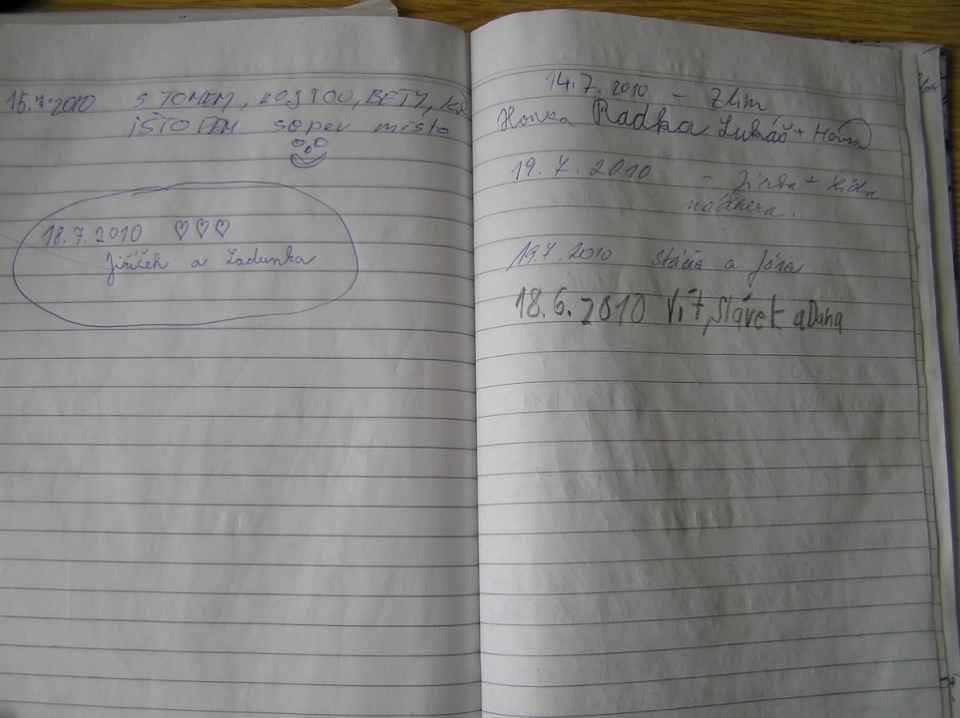 15.7.2010 S TOMEM, KOSTOU, BETY, KR
IŠTOFEM soper místo
18.7.2010 ♡♡♡
Jiříček a Ladunka
14.7.2010 – Zlín
Honza Radka Lukáš + Honza
19.7.2010 – Jirka +
nádhera.
19.7.2010 a Jára
18.6.2010 Vít, Slávek a Dana